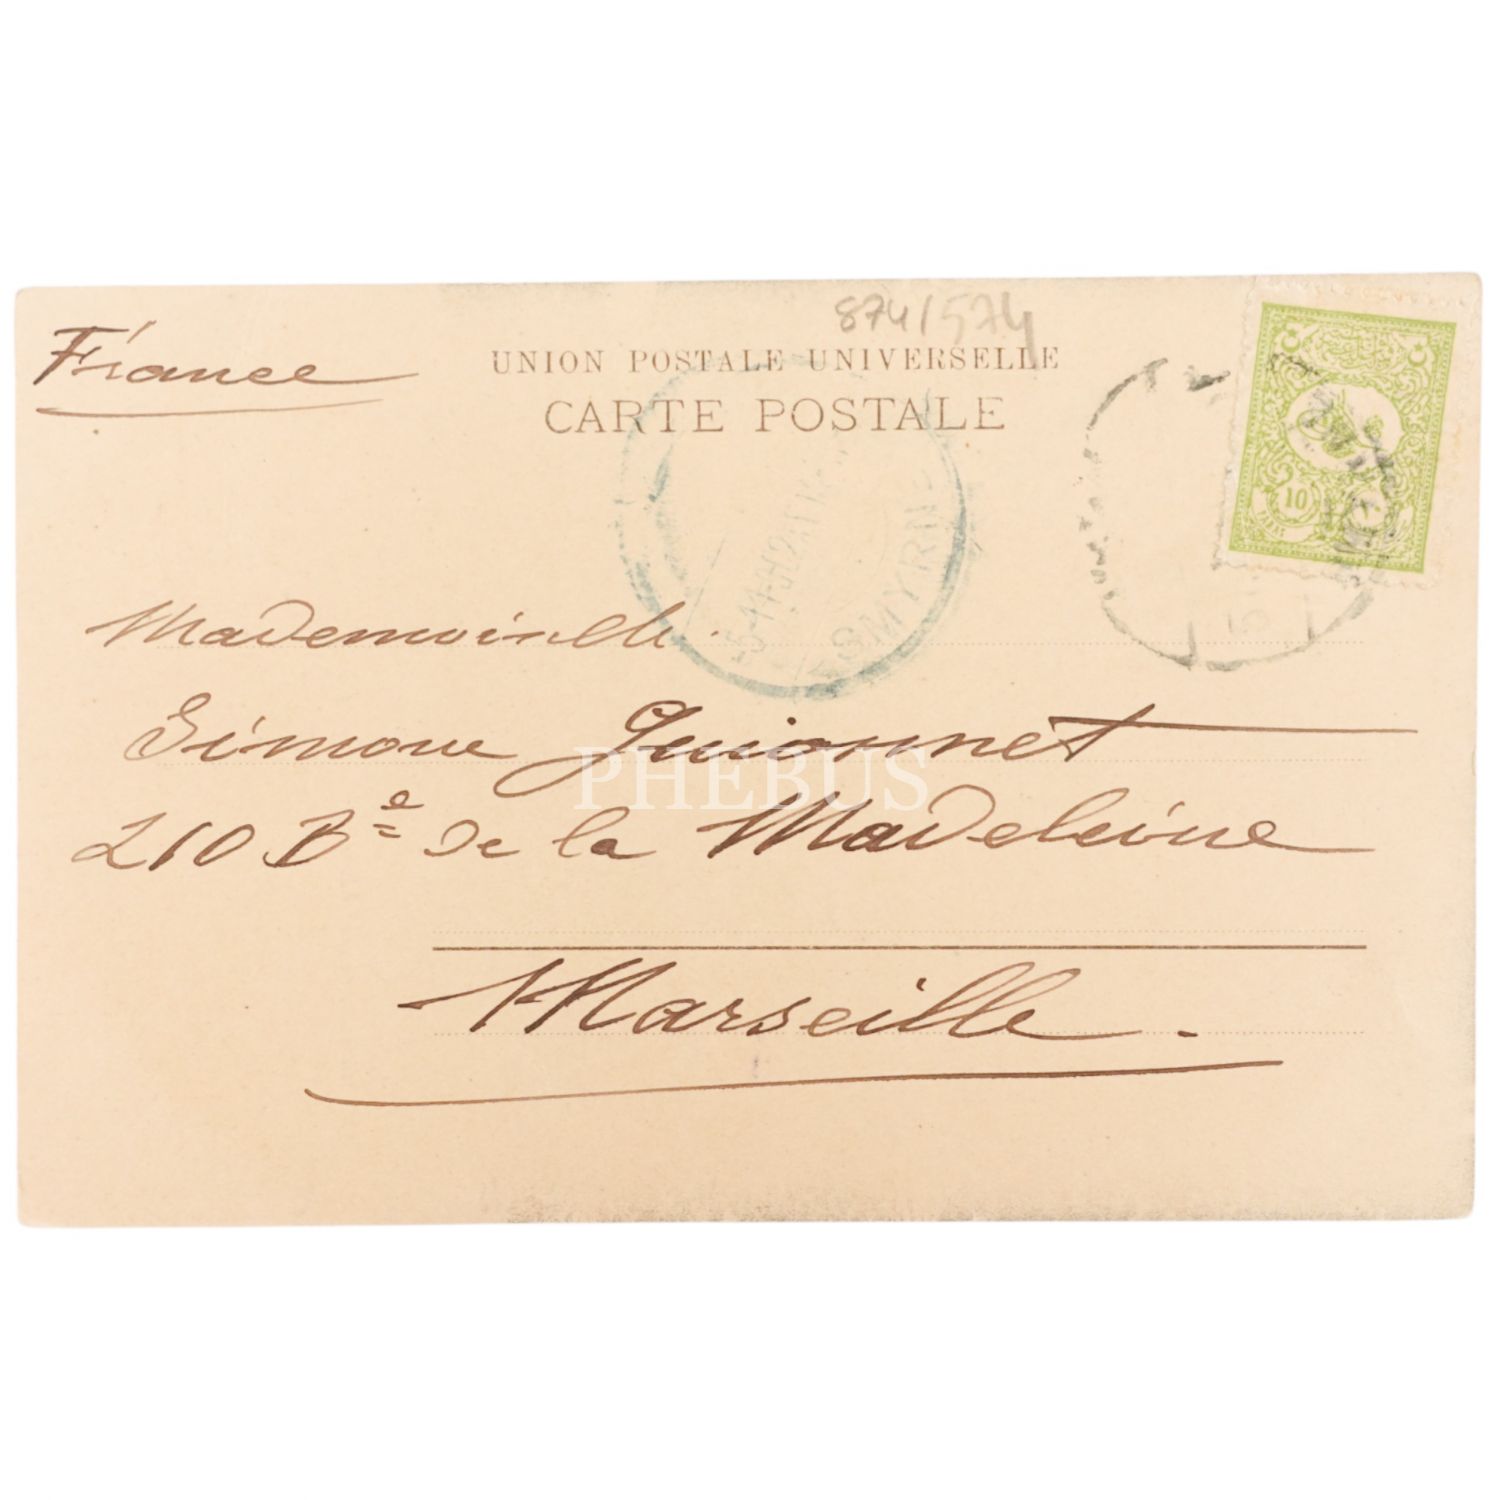 874/574
France
UNION POSTALE UNIVERSELLE
CARTE POSTALE
SMYRNE
10
Mademoiselle
Simone Guionnet
210 Bᵉ de la Madeleine
Marseille.
PHEBUS